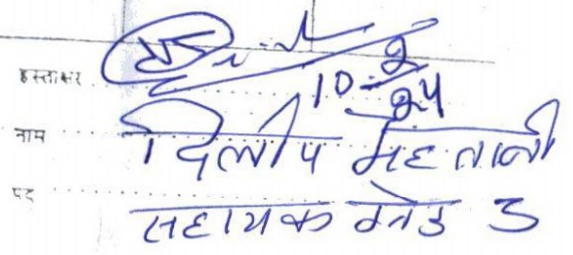 हस्ताक्षर 10-2-24
नाम दिलीप मेहतानी
पद सहायक ग्रेड 3